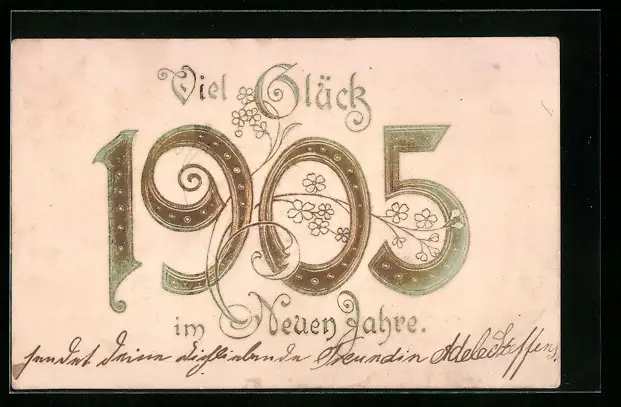 Viel Glück
1905
im Neuen Jahre.
sendet deine dichliebende Freundin Adele Steffens